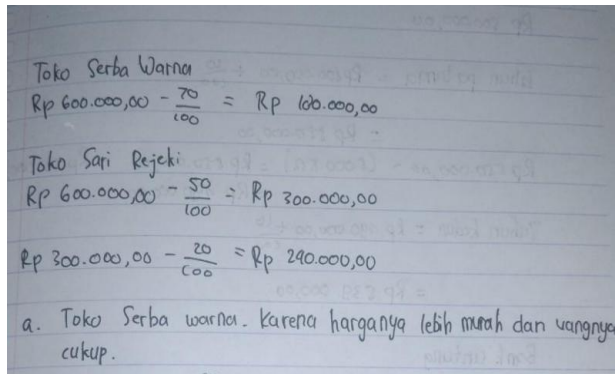 Toko Serba Warna
Rp 600.000,00 - 70/100 = Rp 180.000,00
Toko Sari Rejeki
Rp 600.000,00 - 50/100 = Rp 300.000,00
Rp 300.000,00 - 20/100 = Rp 240.000,00
a. Toko Serba warna. Karena harganya lebih murah dan uangnya
cukup.